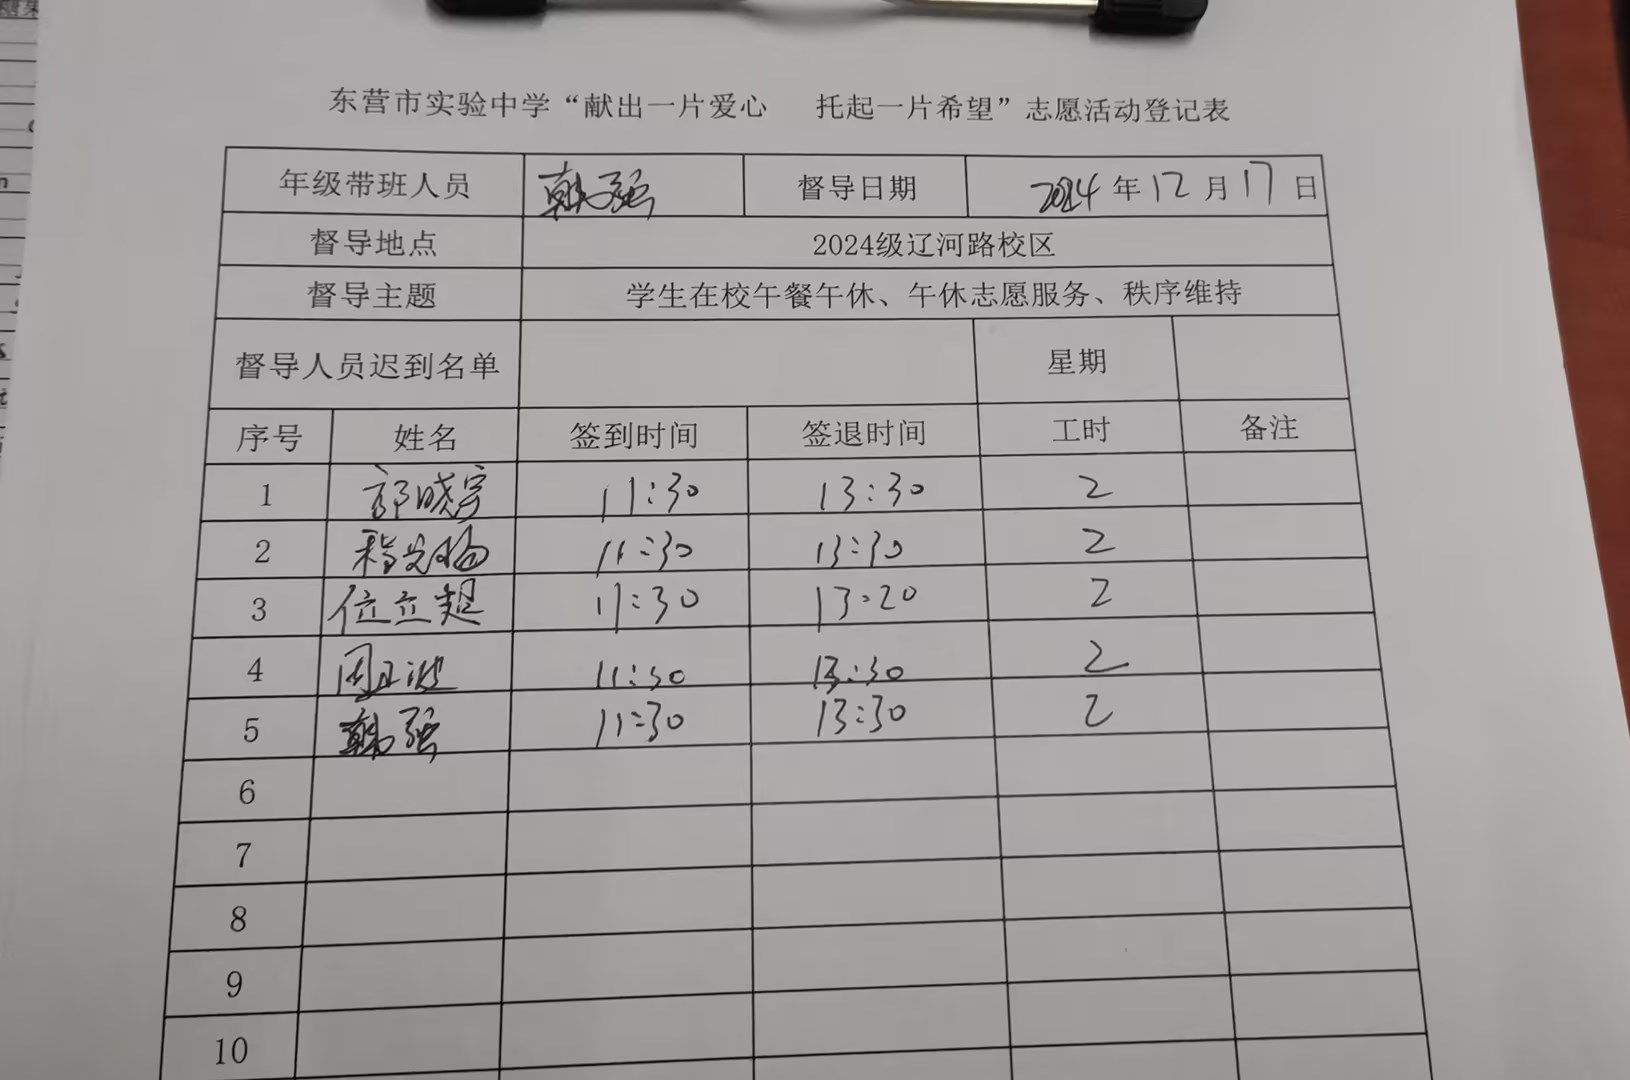 东营市实验中学“献出一片爱心 托起一片希望”志愿活动登记表
年级带班人员 韩强 督导日期 2024年12月17日
督导地点 2024级辽河路校区
督导主题 学生在校午餐午休、午休志愿服务、秩序维持
督导人员迟到名单 星期
序号 姓名 签到时间 签退时间 工时 备注
1 郭晓宇 11:30 13:30 2
2 11:30 13:30 2
3 位立超 11:30 13:20 2
4 周正波 11:30 13:30 2
5 韩强 11:30 13:30 2
6
7
8
9
10